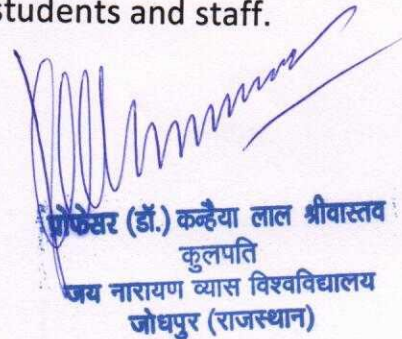 students and staff.
प्रोफेसर (डॉ.) कन्हैया लाल श्रीवास्तव
कुलपति
जय नारायण व्यास विश्वविद्यालय
जोधपुर (राजस्थान)